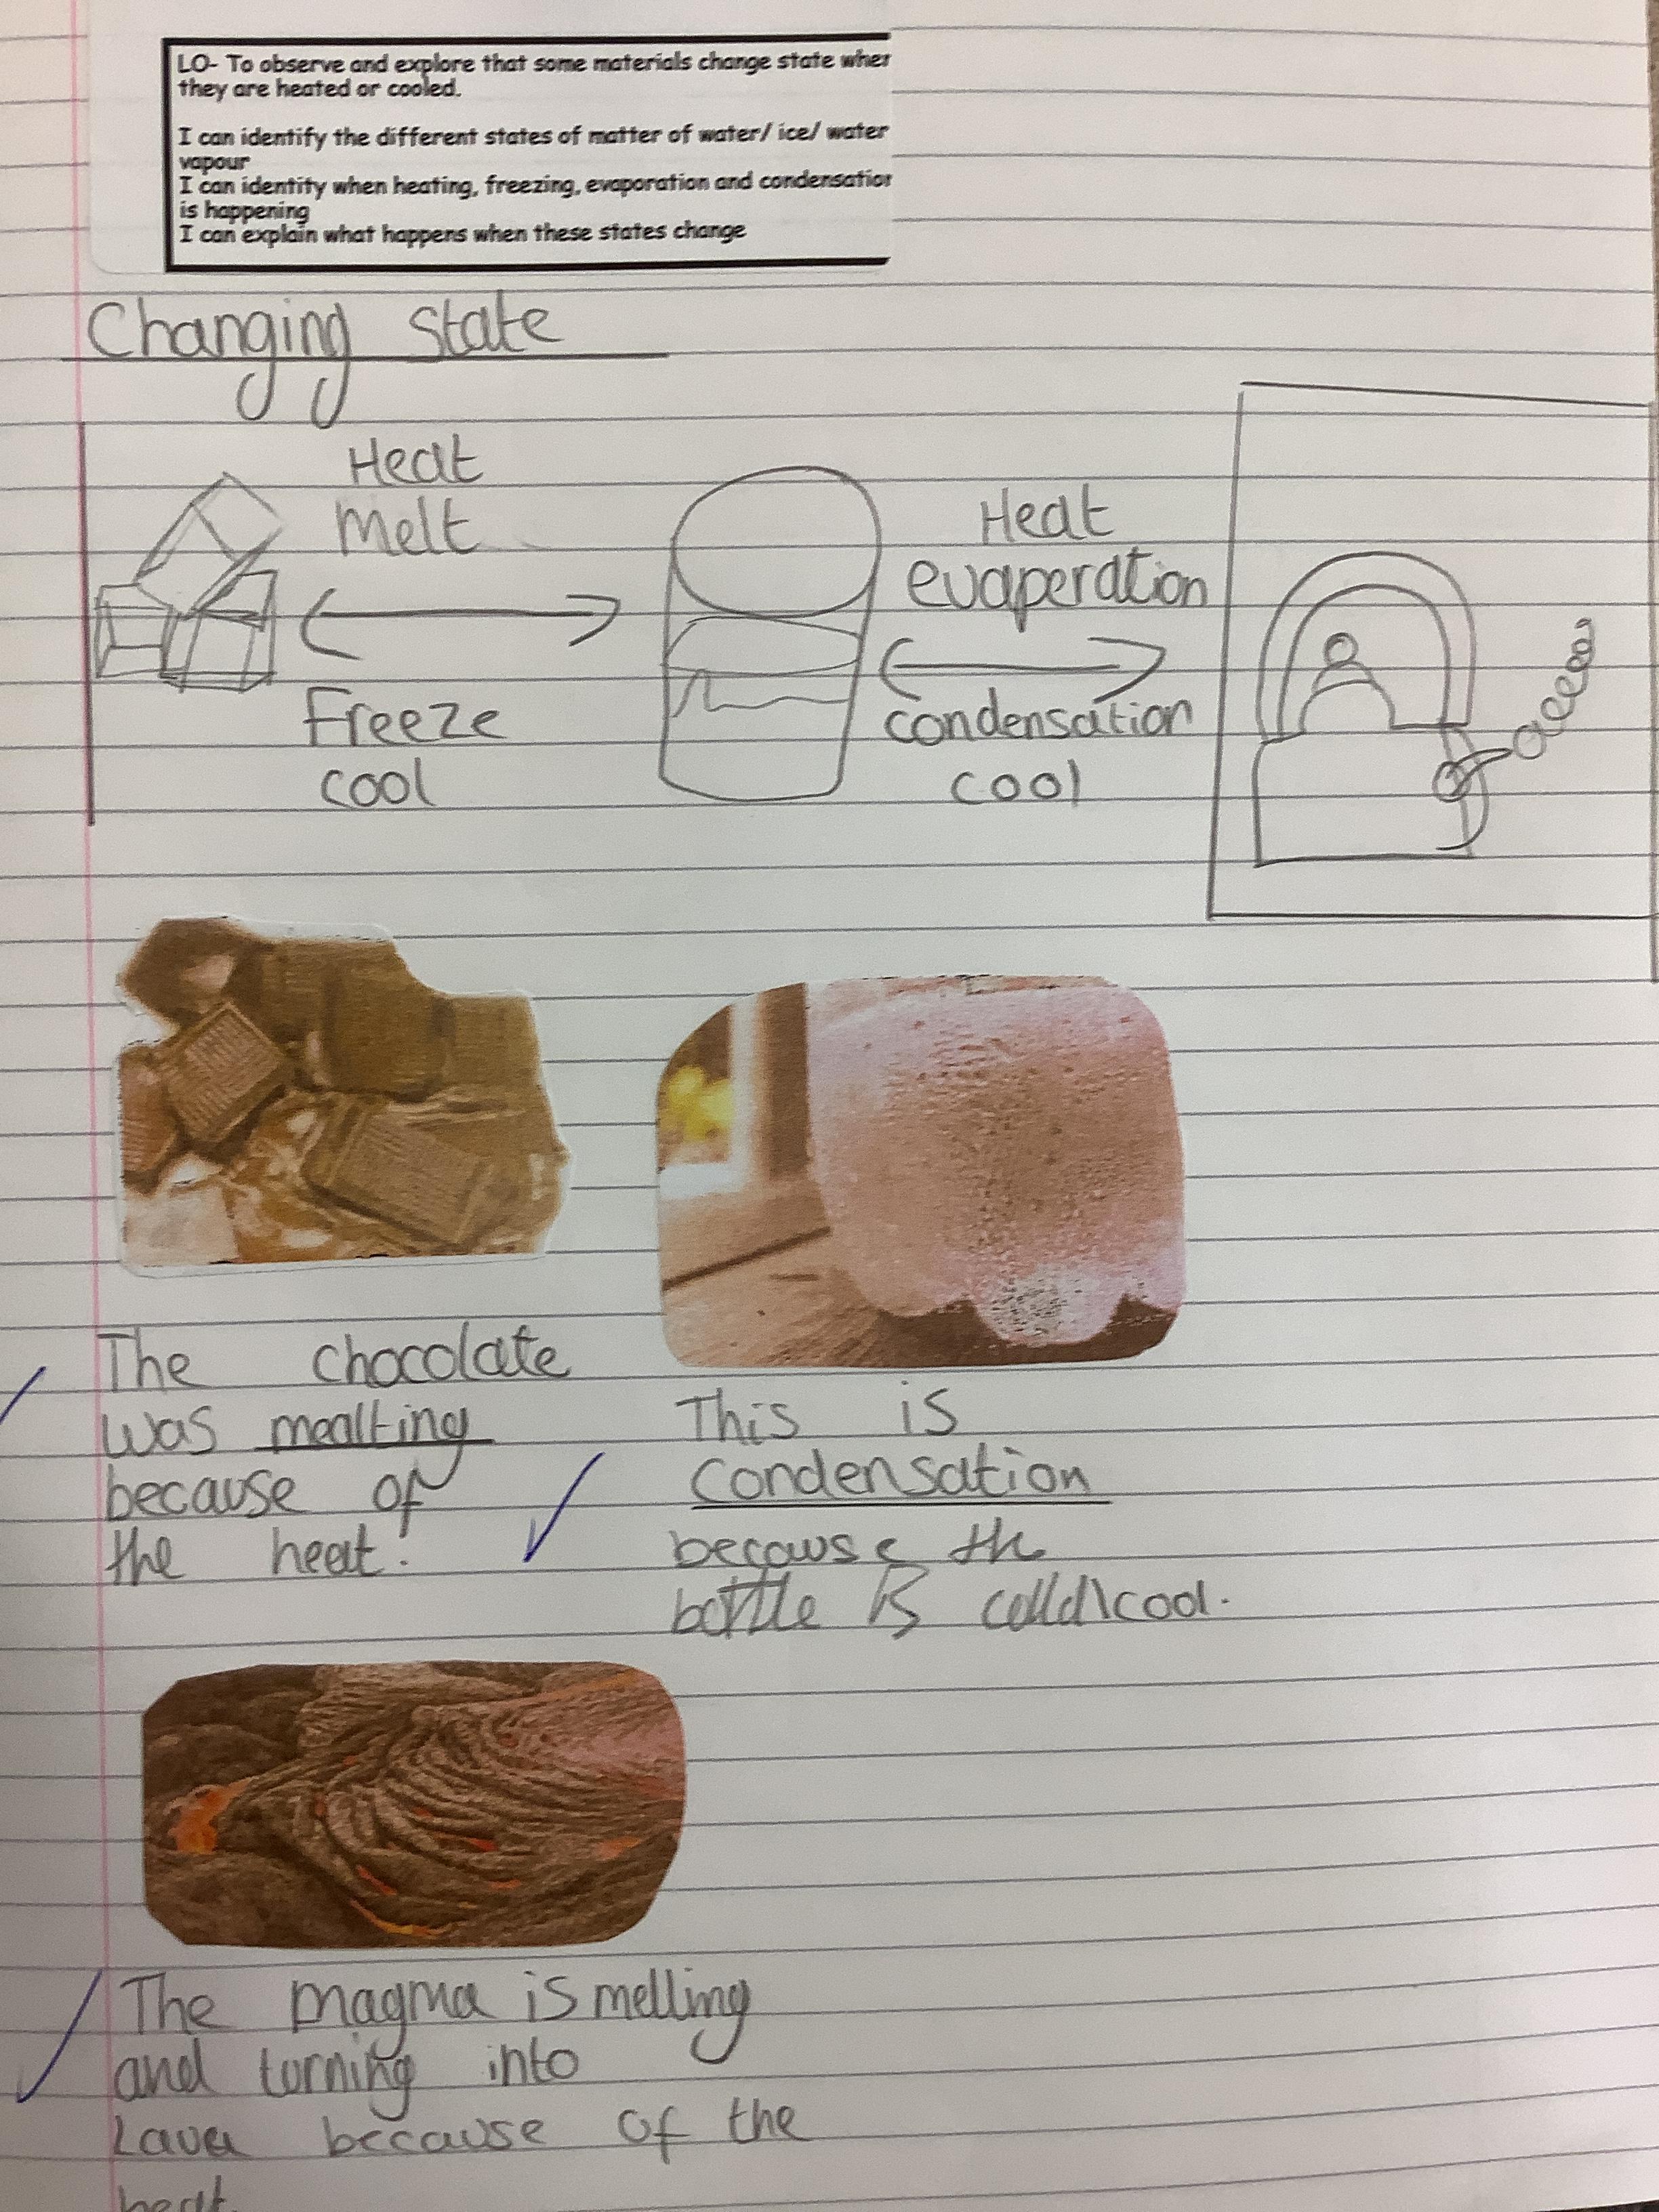 LO- To observe and explore that some materials change state when
they are heated or cooled.
I can identify the different states of matter of water/ ice/ water
vapour
I can identity when heating, freezing, evaporation and condensation
is happening
I can explain what happens when these states change
Changing state
Heat
Melt
Freeze
cool
Heat
evaperation
condensation
cool
The chocolate
was mealting
because of
the heat.
This is
condensation
because the
bottle is colld\cool.
The magma is melling
and torning into
Lava because of the
heat.